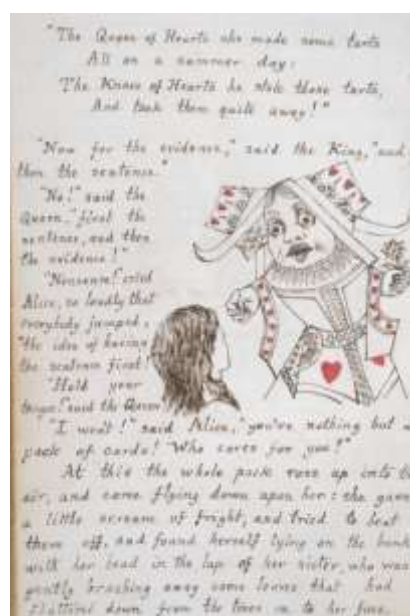 "The Queen of Hearts she made some tarts
All on a summer day:
The Knave of Hearts he stole those tarts,
And took them quite away!"
"Now for the evidence," said the King, "and
then the sentence."
"No!" said the
Queen, "first the
sentence, and then
the evidence!"
"Nonsense!" cried
Alice, so loudly that
everybody jumped,
"the idea of having
the sentence first!"
"Hold your
tongue!" said the Queen
"I won't!" said Alice, "you're nothing but a
pack of cards! Who cares for you?"
At this the whole pack rose up into the
air, and came flying down upon her: she gave
a little scream of fright, and tried to beat
them off, and found herself lying on the bank
with her head in the lap of her sister, who was
gently brushing away some leaves that had
fluttered down from the trees on to her face.